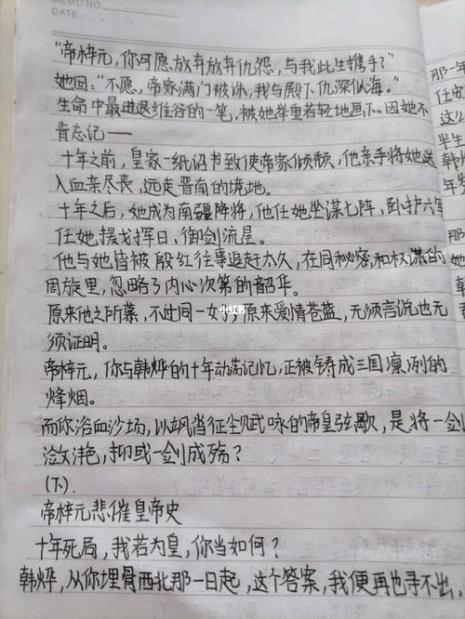 MEMO NO.
DATE
"帝梓元,你可愿放弃放弃仇怨,与我此生携手?"
她回:"不愿,帝家满门被诛,我与殿下仇深似海。"
生命中最进退维谷的一笔,被她举重若轻地画下。因她不
肯忘记——
十年之前,皇家一纸诏书致使帝家倾颓,他亲手将她送
入血亲尽丧,远走晋南的境地。
十年之后,她成为南疆阵将,他任她坐谋七阵,卧护六军
任她援戈挥日,御剑流星。
他与她皆被殷红往事追赶太久,在同秘密和权谋的
周旋里,忽略了内心次第的韶华。
原来他之所慕,不过同一女子,原来爱情苍蓝,无须言说也无
须证明。
帝梓元,你与韩烨的十年动荡记忆,正被铸成三国凛冽的
烽烟。
而你浴血沙场,以飒沓征尘赋咏的帝皇弦歌,是将一剑
潋滟,抑或一剑成殇?
(下).
帝梓元悲催皇帝史
十年死局,我若为皇,你当如何?
韩烨,从你埋骨西北那一日起,这个答案,我便再也等不出,
那一年
任安
这么
半生
韩
年岁
小红书